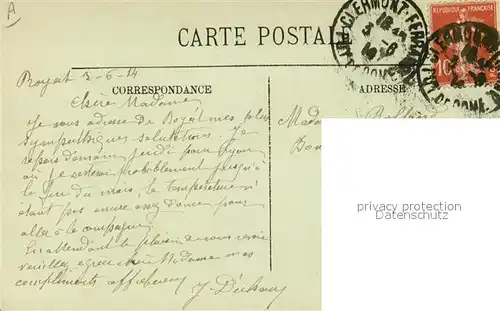 A
CARTE POSTALE
CLERMONT-FERRAND
REPUBLIQUE FRANÇAISE
10
Royat 3-6-14
CORRESPONDANCE
ADRESSE
Chère Madame
Je vous adresse de Royat mes plus
sympathiques salutations. Je
repars demain jeudi pour Lyon
où je resterai probablement jusqu'à
la fin du mois, la température n'
étant pas encore assez douce pour
aller à la campagne.
En attendant le plaisir de vous revoir
veuillez agréer chère Madame mes
compliments affectueux
Madame
privacy protection
Datenschutz